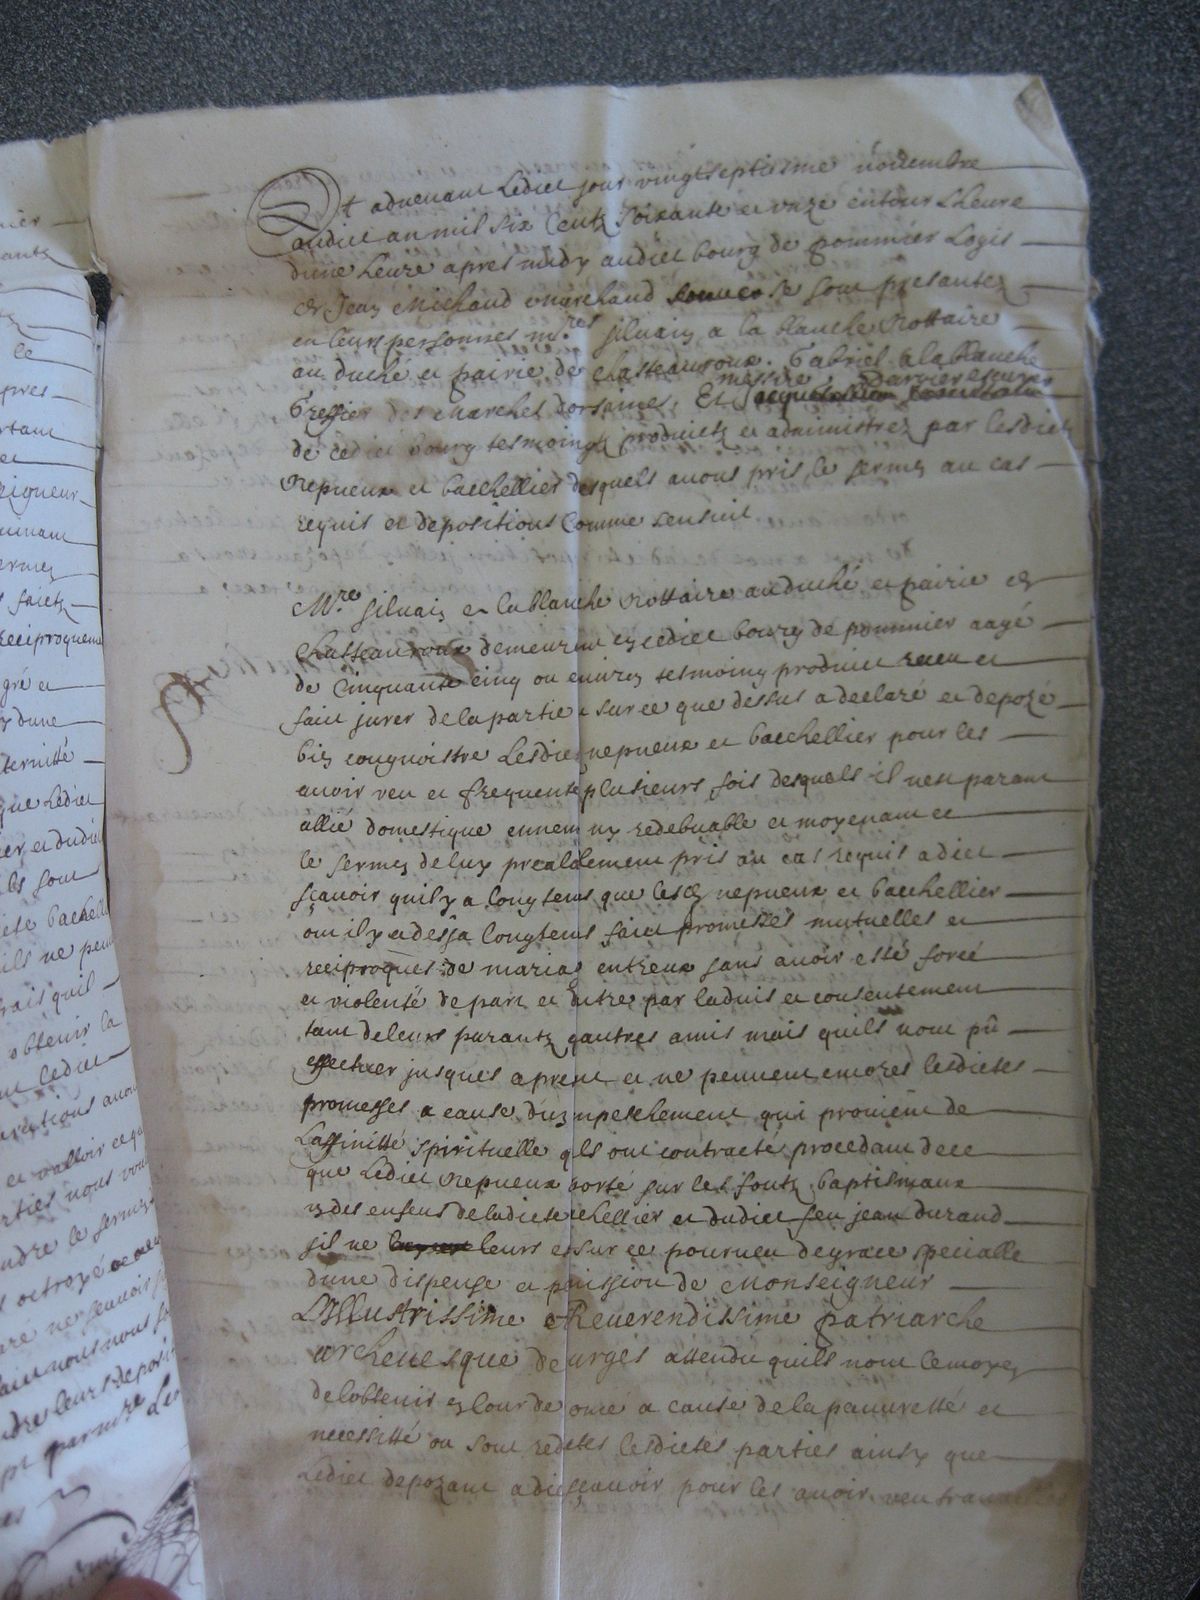 Et advenant Ledict jour vingt septiesme novembre
audict an mil six Centz soixante et unze entour Lheure
dune heure apres midy audict bourg de pommier Logis
de Jean Michaud marchand se sont presantez
en leurs personnes mres silvain a la blanche Nottaire
au duché et pairie de chasteauroux. Gabriel a la blanche
messire Darvier escuyer
Greffier des Marches dorsaines, Et
de cedict bourg tesmoingz produictz et administrez par lesdictz
Nepueux et bachellier desquels avons pris le sermen au cas
requis et depositions Comme sensuit
Mre silvain a la blanche Nottaire au duché et pairie de
Chasteauroux demeurant en cedict bourg de pommier aagé
de Cinquante cinq ou environ tesmoing produict receu et
faict jurer de la partie sur ce que dessus a declaré et depozé
bien cougnoistre Lesdictz nepueux et bacchellier pour les
avoir veu et frequenté plusieurs fois desquels il nest parant
allié domestique ennemy ny redebvable et moyenant ce
le sermen de luy prealablement pris au cas requis a dict
sçavoir quil y a longtems que lesd nepueux et bacchellier
ont il y a desja longtems faict promesses mutuelles et
reciproques de mariage entreux sans avoir esté forcé
et violenté de part et dutre par ladvis et consentement
tant de leurs parantz qautres amis mais quils nont pû
effectuer jusques a prent et ne peuvent encores lesdictes
promesses a cause dun enpeschement qui provient de
Laffinitté spirituelle qls ont contracté procedant de ce
que Ledict Nepueux a porté sur les fontz baptismaux
un des enfens de ladicte bachellier et dudict feu jean durand
sil ne leurs est sur ce pourveu de grace specialle
dune dispense et permission de Monseigneur
Lillustrissime et Reverendissime patriarche
archevesque de bourges attendu quils nont le moyen
de lobtenir en Cour de Rome a cause de la pauvretté et
necessitté ou sont redctes lesdictes parties ainsy que
Ledict depozant a dict sçavoir pour les avoir veu
nier
antz
le
pres
rtant
et
eigneur
ermen
faictz
reciproquement
gré et
dune
ternitté
que Ledict
er et dudict
ls sont
icte bachell
ils ne peu
rais quil
obtenir la
Ledict
et valloir ce q
rties nous vou
ndre le sermen
octroyé acte
aré ne scavoir
ndre leurs deposi